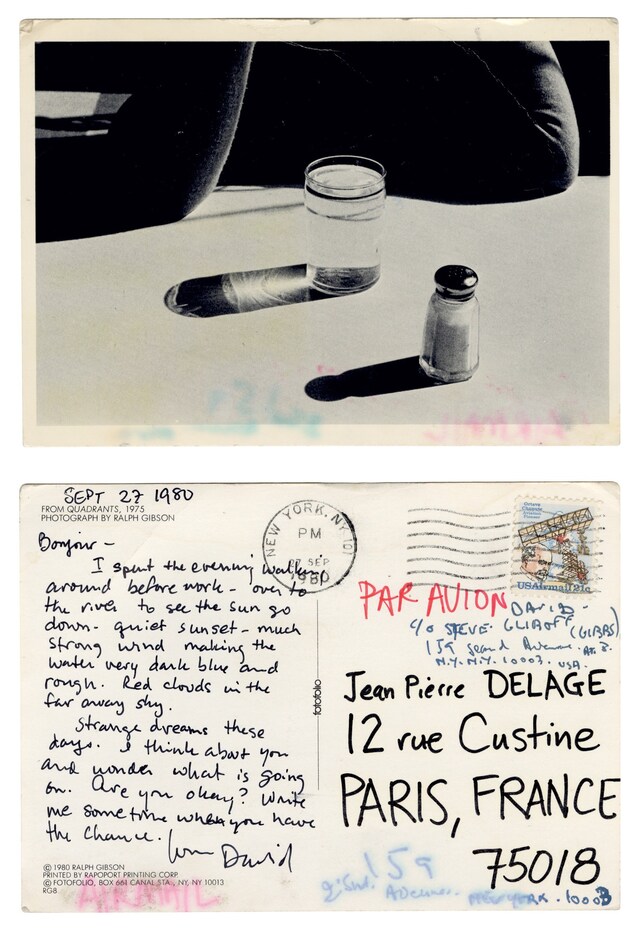 SEPT 27 1980
FROM QUADRANTS, 1975
PHOTOGRAPH BY RALPH GIBSON
Bonjour -
I spent the evening walking
around before work - over to
the river to see the sun go
down - quiet sunset - much
strong wind making the
water very dark blue and
rough. Red clouds in the
far away sky.
Strange dreams these
days. I think about you
and wonder what is going
on. Are you okay? Write
me sometime when you have
the chance.
Love David
© 1980 RALPH GIBSON
PRINTED BY RAPOPORT PRINTING CORP.
© FOTOFOLIO, BOX 661 CANAL STA., NY, NY 10013
RG8
AIRMAIL
fotofolio
NEW YORK, NY
PM
27 SEP
1980
Octave
Chanute
Aviation
Pioneer
USAirmail 21c
PAR AVION
DAVID -
c/o STEVE GLIBOFF (GIBBS)
159 Second Avenue. Apt.
N.Y. N.Y. 10003. USA.
Jean Pierre DELAGE
12 rue Custine
PARIS, FRANCE
75018
159
2nd. Avenue. NEW YORK. 10003